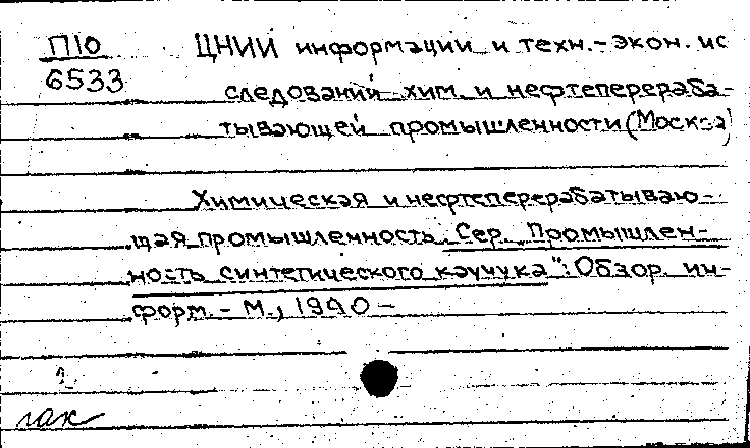 П10 ЦНИИ информации и техн.-экон. ис
6533 следований хим. и нефтеперераба-
тывающей промышленности (Москва)
Химическая и нефтеперерабатываю-
щая промышленность. Сер. "Промышлен-
ность синтетического каучука": Обзор. ин-
форм. - М., 1990 -